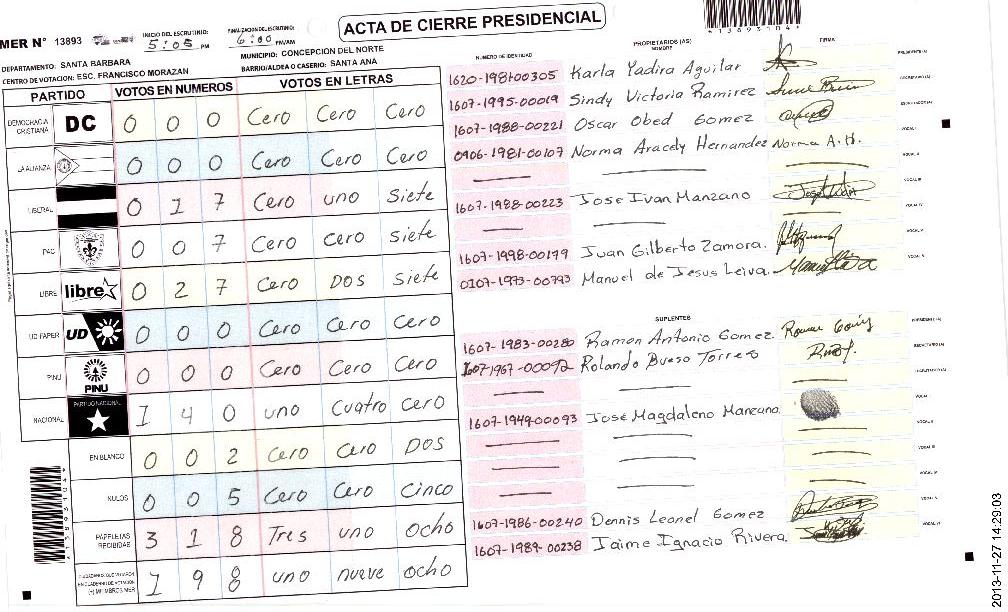 ACTA DE CIERRE PRESIDENCIAL
MER N° 13893
INICIO DEL ESCRUTINIO: 5:05 PM
FINALIZACION DEL ESCRUTINIO: 6:00 PM/AM
DEPARTAMENTO: SANTA BARBARA
MUNICIPIO: CONCEPCION DEL NORTE
CENTRO DE VOTACION: ESC. FRANCISCO MORAZAN
BARRIO/ALDEA O CASERIO: SANTA ANA
PARTIDO VOTOS EN NUMEROS VOTOS EN LETRAS
DEMOCRACIA CRISTIANA DC 0 0 0 Cero Cero Cero
LA ALIANZA 0 0 0 Cero Cero Cero
LIBERAL 0 1 7 Cero uno Siete
PAC 0 0 7 Cero Cero Siete
LIBRE libre 0 2 7 Cero DOS Siete
UD-FAPER UD 0 0 0 Cero Cero Cero
PINU PINU 0 0 0 Cero Cero Cero
NACIONAL PARTIDO NACIONAL 1 4 0 uno Cuatro cero
EN BLANCO 0 0 2 Cero Cero DOS
NULOS 0 0 5 Cero Cero Cinco
PAPELETAS RECIBIDAS 3 1 8 Tres uno ocho
CIUDADANOS QUE VOTARON EN CUADERNO DE VOTACION (+) MIEMBROS MER 1 9 8 uno nueve ocho
NUMERO DE IDENTIDAD
PROPIETARIOS (AS)
NOMBRE
FIRMA
1620-1981-00305 Karla Yadira Aguilar PRESIDENTE (A)
1607-1995-00019 Sindy Victoria Ramirez SECRETARIO (A)
1607-1988-00221 Oscar Obed Gomez ESCRUTADOR (A)
0906-1981-00107 Norma Aracely Hernandez Norma A. H. VOCAL I
VOCAL II
1607-1988-00223 Jose Ivan Manzano VOCAL III
VOCAL IV
1607-1998-00179 Juan Gilberto Zamora. VOCAL V
0107-1973-00793 Manuel de Jesus Leiva. VOCAL VI
SUPLENTES
1607-1983-00280 Ramon Antonio Gomez. PRESIDENTE (A)
1607-1967-00092 Rolando Bueso Torres SECRETARIO (A)
ESCRUTADOR (A)
1607-1949-00093 Jose Magdaleno Manzano VOCAL I
VOCAL II
VOCAL III
VOCAL IV
1607-1986-00240 Dennis Leonel Gomez VOCAL V
1607-1989-00238 Jaime Ignacio Rivera. VOCAL VI
2013-11-27 14:29:03